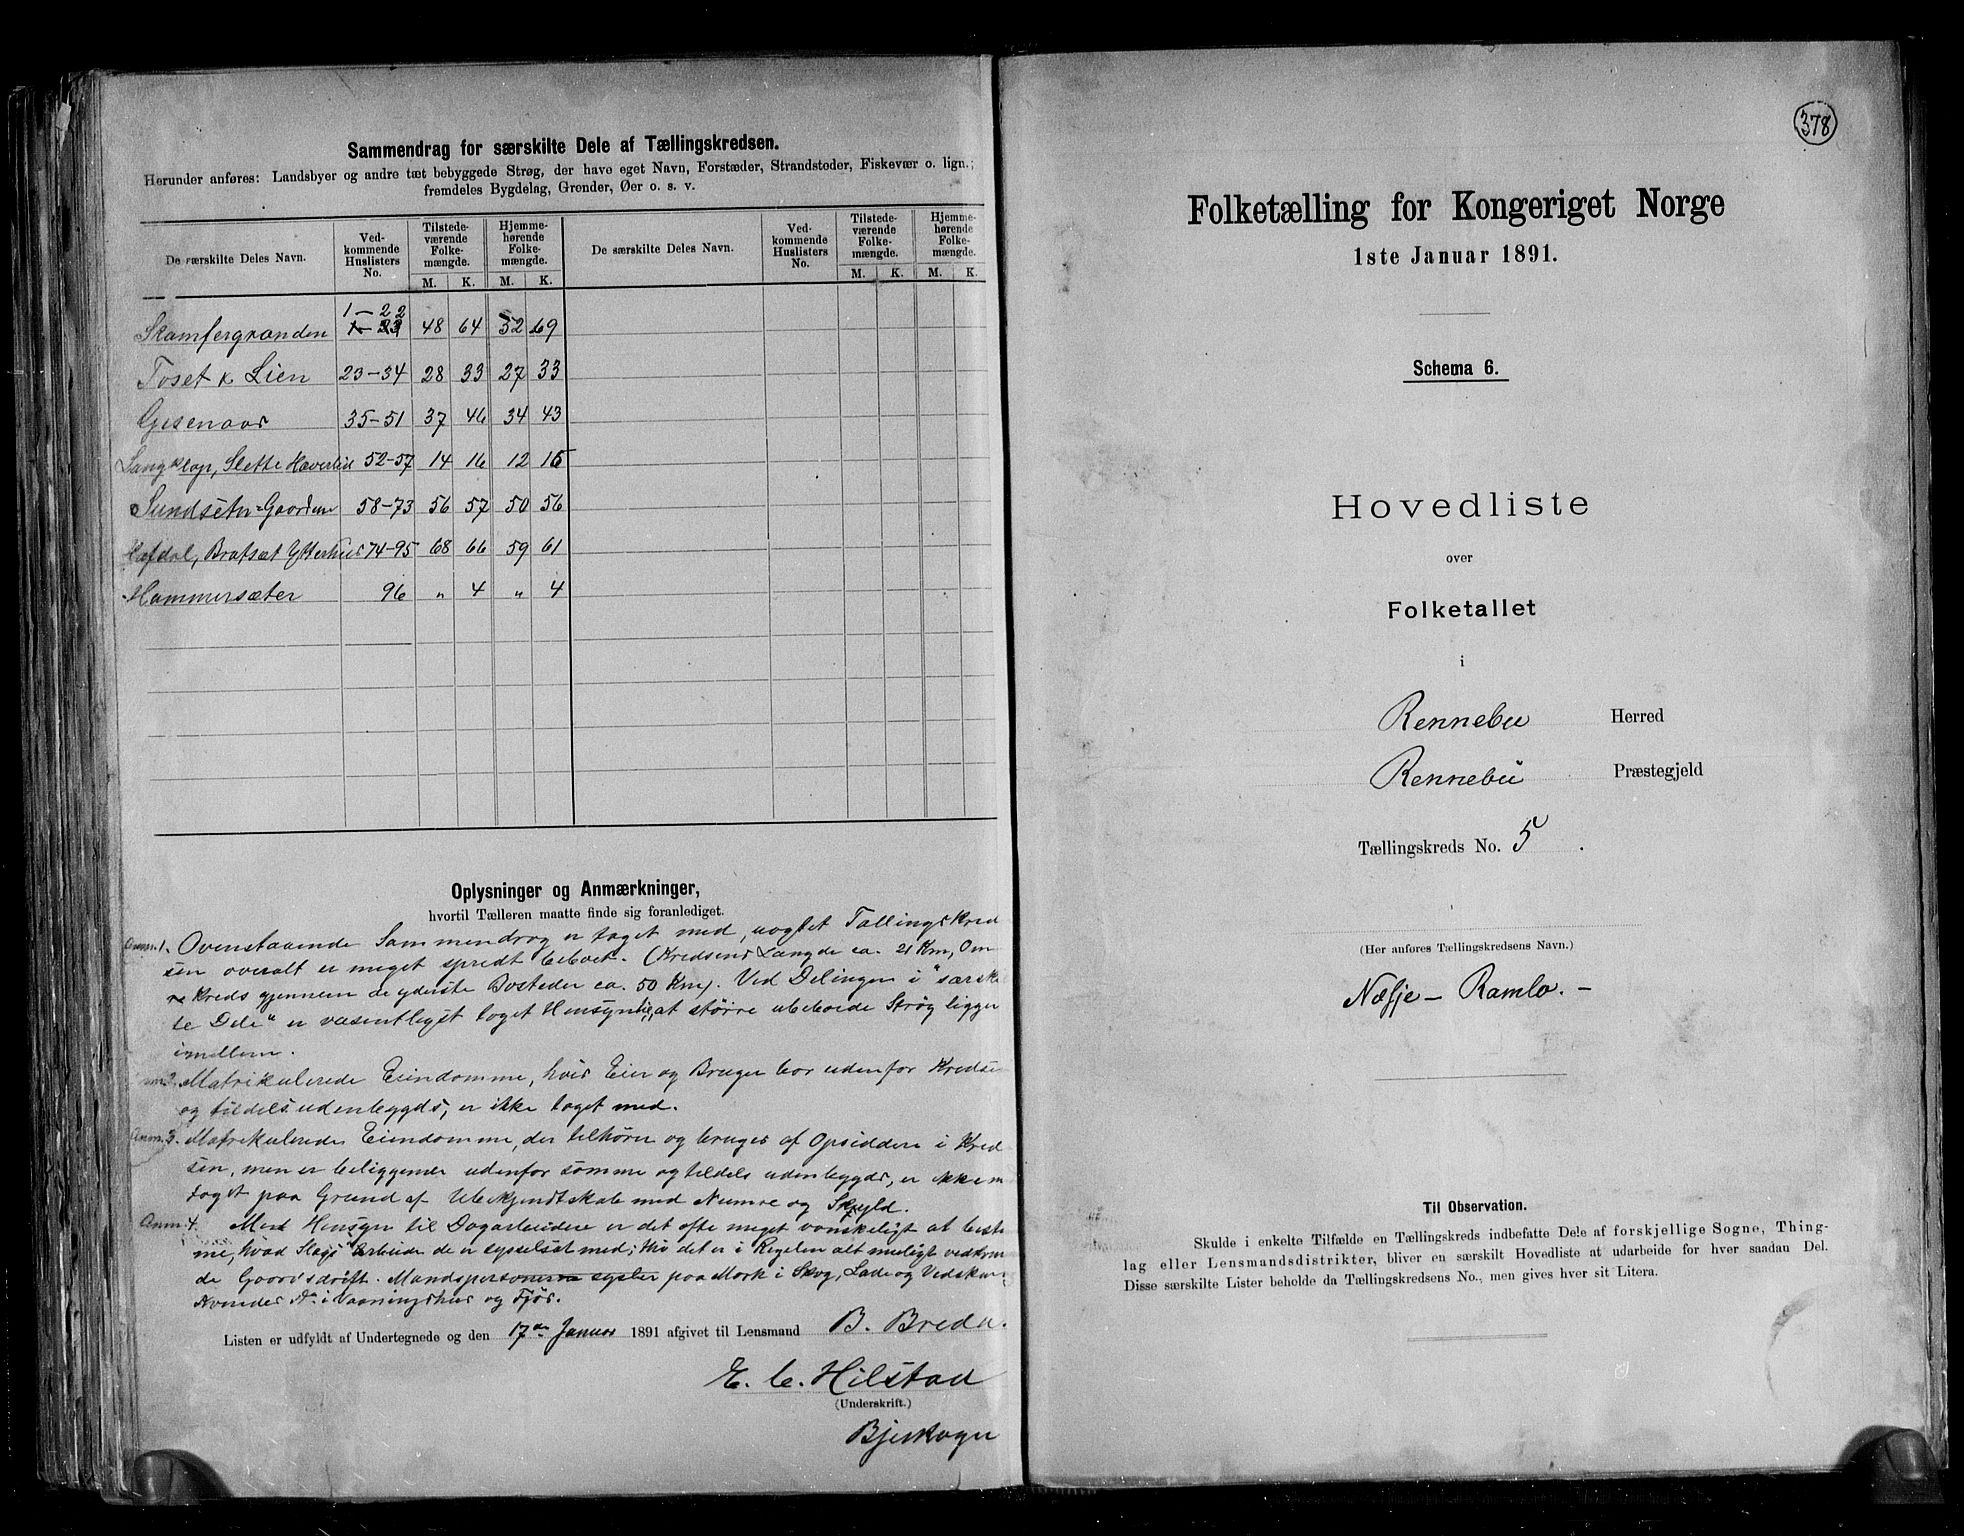 Sammendrag for særskilte Dele af Tællingskredsen.
Herunder anføres: Landsbyer og andre tæt bebyggede Strøg, der have eget Navn, Forstæder, Strandsteder, Fiskevær o. lign.;
fremdeles Bygdelag, Grender, Øer o. s. v.
De særskilte Deles Navn. Ved-kommende Huslisters No. Tilstede-værende Folke-mængde. Hjemme-hørende Folke-mængde. De særskilte Deles Navn. Ved-kommende Huslisters No. Tilstede-værende Folke-mængde. Hjemme-hørende Folke-mængde.
M. K. M. K. M. K. M. K.
1-22
Skamfergrænden 1-23 48 64 52 69
Toset & Lien 23-34 28 33 27 33
Gisenaas 35-51 37 46 34 43
Langklop, Slette Haverlie 52-57 14 16 12 15
Sundsetn-Gaardene 58-73 56 57 50 56
Hæfdal, Bratsæt Ytterhus 74-95 68 66 59 61
Hammersæter 96 " 4 " 4
Oplysninger og Anmærkninger,
hvortil Tælleren maatte finde sig foranlediget.
Anm. 1. Ovenstaaende Sammendrag er taget med, uagtet Tællingskred
sen overalt er meget spredt beboet. (Kredsens Længde ca. 21 Km, Om
kreds gjennem de yderste Bosteder ca. 50 Km). Ved Delingen i "særskil
te Dele" er væsentligst taget Hensyn til, at større ubeboede Strøg ligger
imellem.
Matrikulerede Eiendomme, hvis Eier og Bruger bor udenfor Kredse
og tildels udenbygds, er ikke taget med.
Anm. 3. Matrikulerede Eiendomme, der tilhører og bruges af Opsiddere i Kred
sen, men er beliggende udenfor samme og tildels udenbygds, er ikke m
taget paa Grund af Ubekjendtskab med Numre og Skyld.
Anm. 4. Med Hensyn til Dagarbeidere er det ofte meget vanskeligt at bestem
me, hvad Slags Arbeide de er sysselsat med; thi det er i Regelen alt muligt vedkommen
de Gaardsdrift. Mandspersonerne sysler paa Mark i Skog, Lade og Vedskur,
Kvindes Ar. i Vaaningshus og Fjøs.
Listen er udfyldt af Undertegnede og den 17de Januar 1891 afgivet til Lensmand B. Breda.
E. C. Hilstad
(Underskrift.)
Bjerkager
378
Folketælling for Kongeriget Norge
1ste Januar 1891.
Schema 6.
Hovedliste
over
Folketallet
i
Rennebu Herred
Rennebu Præstegjeld
Tællingskreds No. 5.
(Her anføres Tællingskredsens Navn.)
Næsje - Ramlo. -
Til Observation.
Skulde i enkelte Tilfælde en Tællingskreds indbefatte Dele af forskjellige Sogne, Thing-
lag eller Lensmandsdistrikter, bliver en særskilt Hovedliste at udarbeide for hver saadan Del.
Disse særskilte Lister beholde da Tællingskredsens No., men gives hver sit Litera.